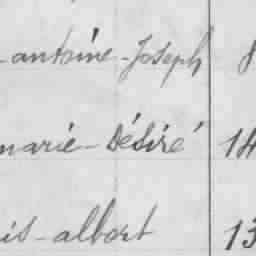 -antoine-Joseph 8
marie-Désiré 14
is-albert 13